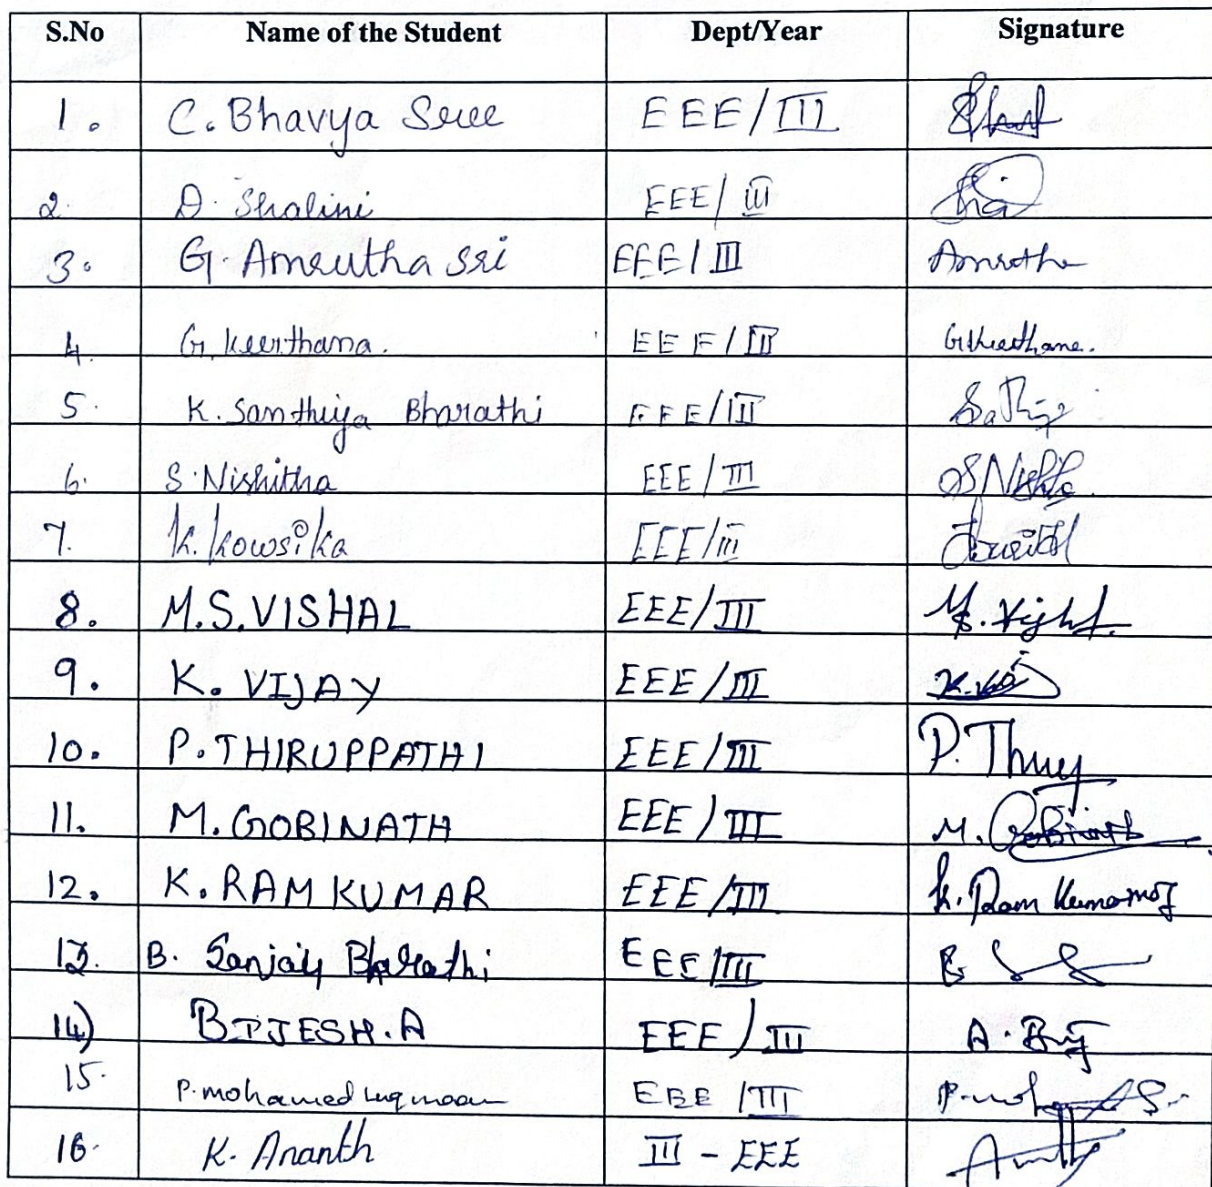 S.No Name of the Student Dept/Year Signature
1. C. Bhavya Sree EEE/III
2. D. Shalini EEE/III
3. G. Amrutha Sri EEE/III Amrutha
4. G. Keerthana. EEE/III G.Keerthana.
5. K. Santhiya Bharathi EEE/III
6. S. Nishitha EEE/III
7. K. Kowsika EEE/III
8. M.S.VISHAL EEE/III
9. K. VIJAY EEE/III
10. P. THIRUPPATHI EEE/III
11. M. GOBINATH EEE/III M. Gobinath
12. K. RAM KUMAR EEE/III K. Ram Kumar
13. B. Sanjay Bharathi EEE/III
14) BIJESH.A EEE/III
15. P. mohamed luqmaan EEE/III
16. K. Ananth III - EEE